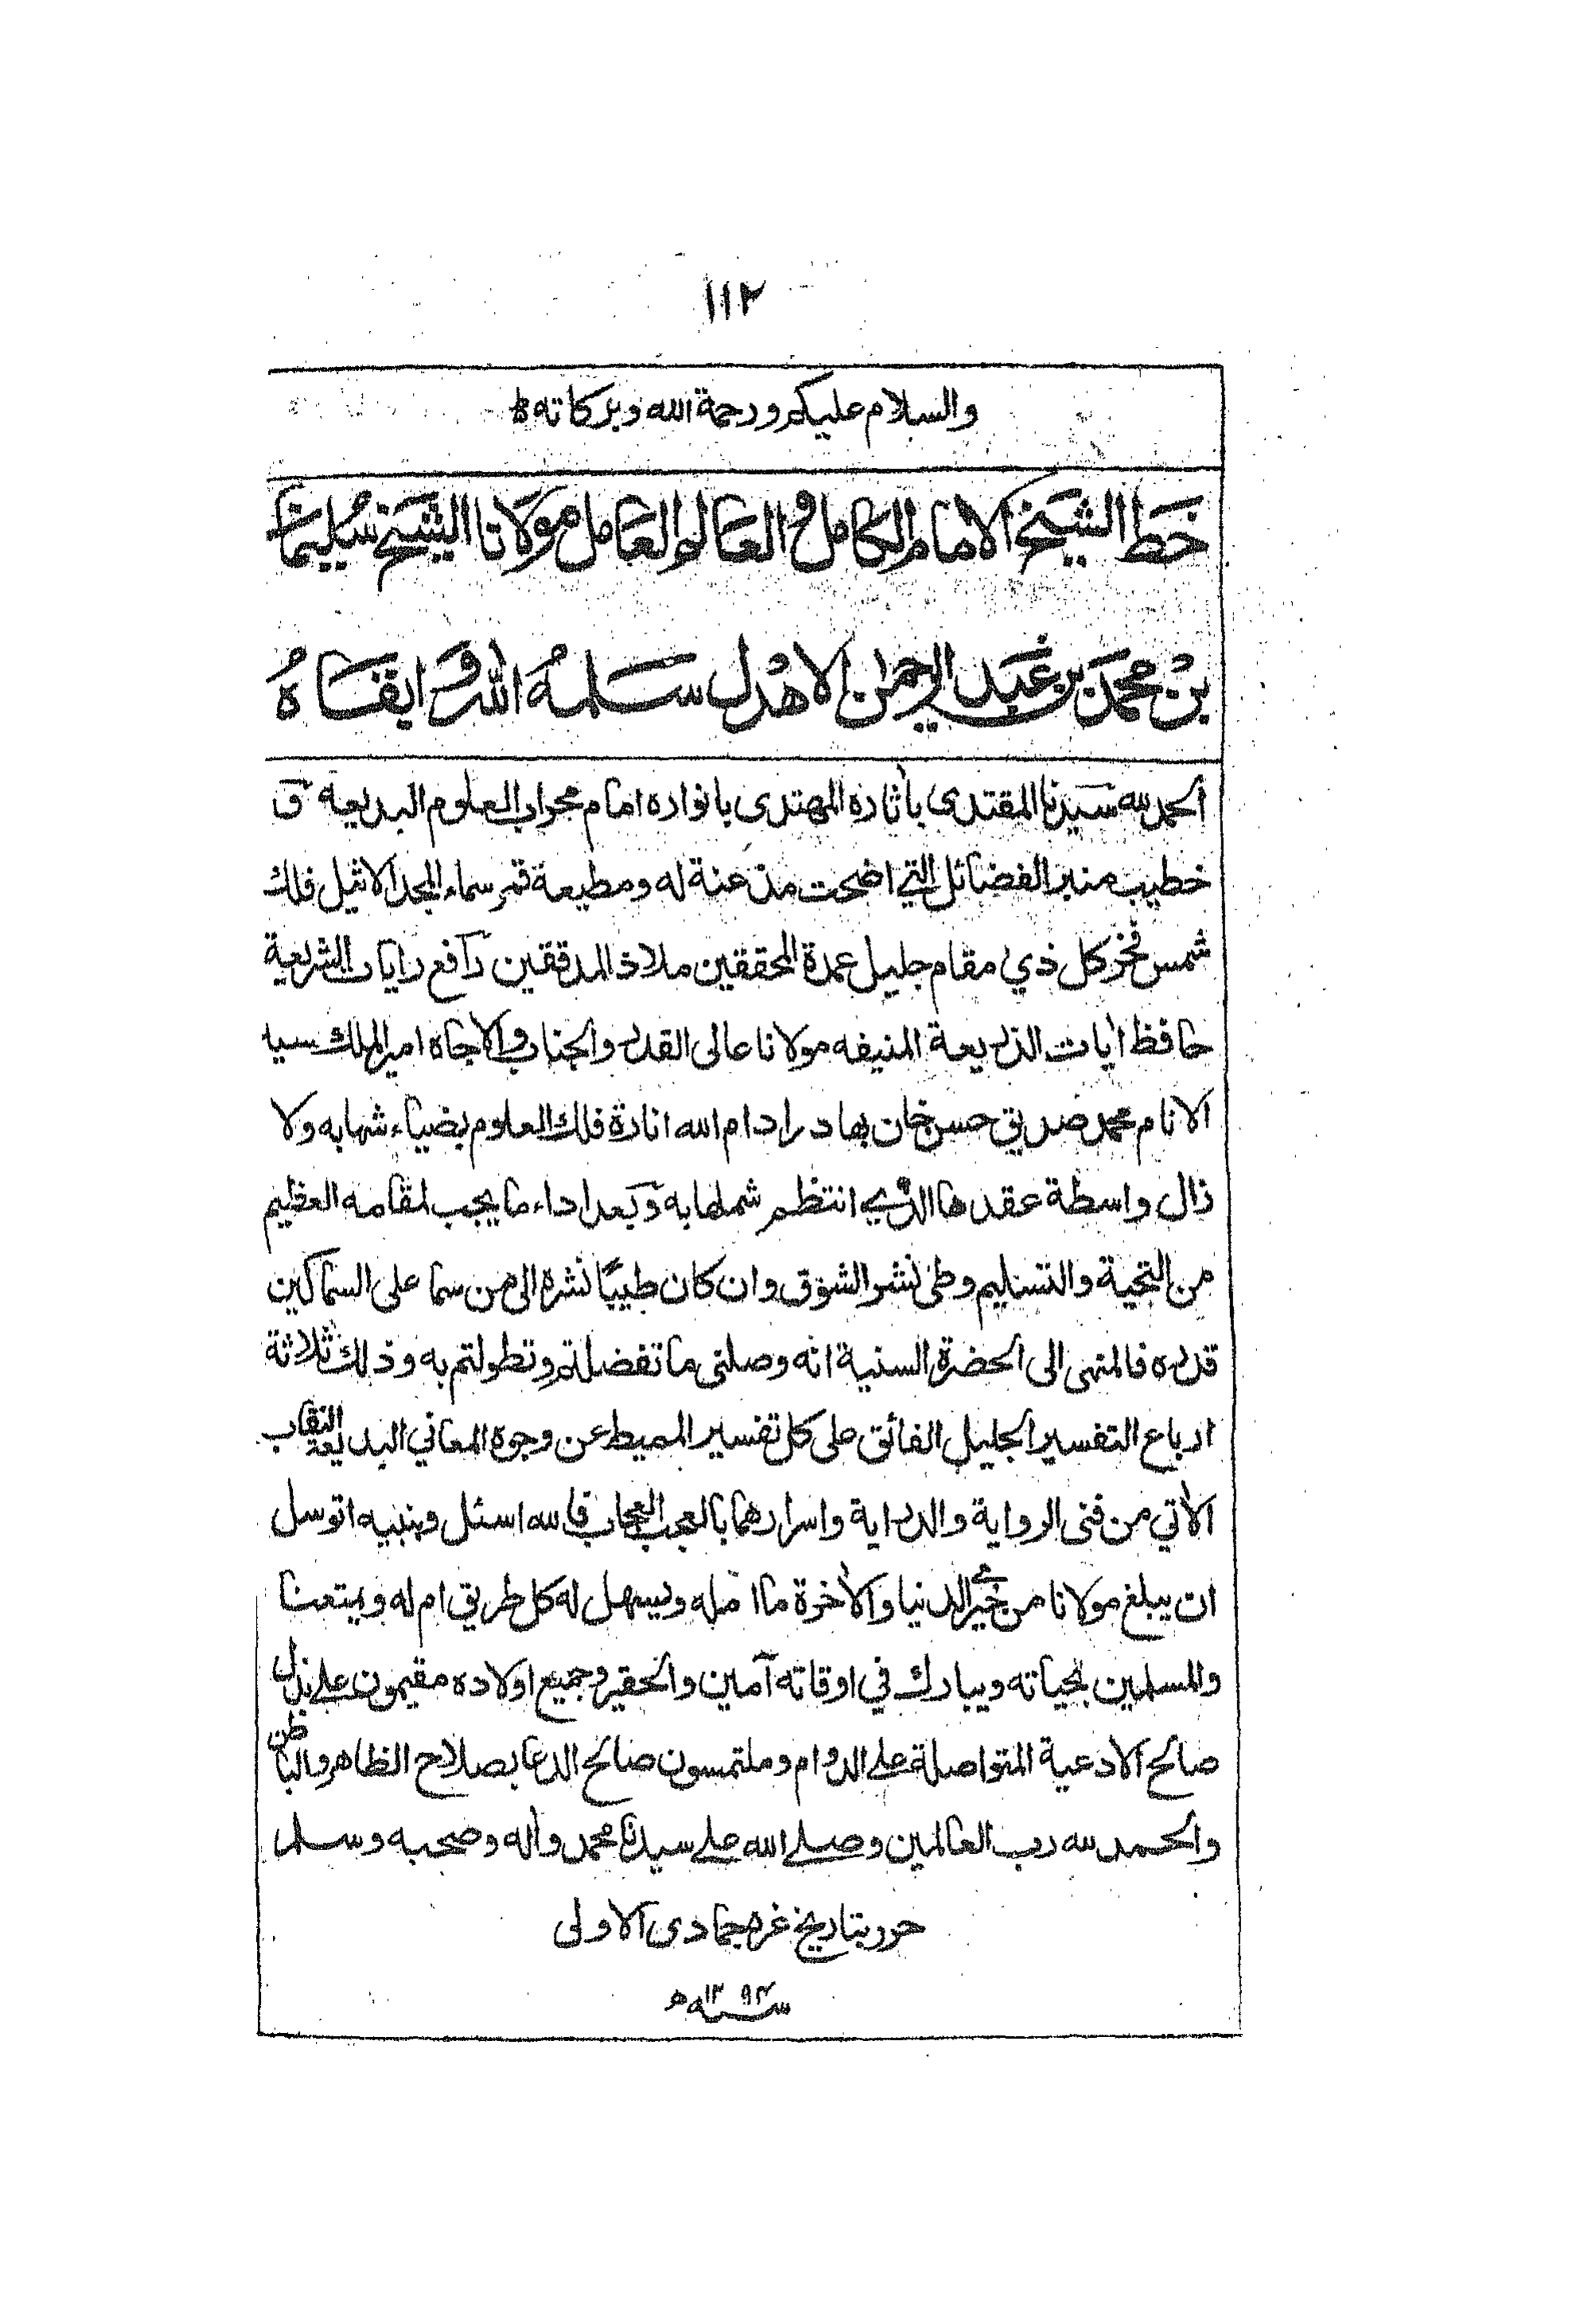 ١١٢
والسلام عليكم ورحمة الله وبركاته ط
خط الشيخ الامام الكامل والعالم العامل مولانا الشيخ سليمان
بن محمد بن عبد الرحمن الاهدل سلمه الله وابقاه
الحمد لله سيدنا المقتدى بأثاره المهتدى بانواره امام محراب العلوم البديعه و
خطيب منبر الفضائل التي اضحت مذعنة له ومطيعة قمر سماء المجد الاثيل فلك
شمس فخر كل ذي مقام جليل عمدة المحققين ملاذ المدققين رافع رايات الشريعة
حافظ ايات الذريعة المنيفه مولانا عالى القدر والجناب والاجاه امير الملك سيد
الانام محمد صديق حسن خان بهادر ادام الله انارة فلك العلوم بضياء شهابه ولا
زال واسطة عقدها الذي انتظم شملها به وبعد اداء ما يجب لمقامه العظيم
من التحية والتسليم وطى نشر الشوق وان كان طيبًا نشره الى من سما على السماكين
قدره فالمنهى الى الحضرة السنية انه وصلنى ما تفضلتم وتطولتم به وذلك ثلاثة
ارباع التفسير الجليل الفائق على كل تفسير المميط عن وجوه المعاني البديعة النقاب
الأتي من فنى الرواية والدراية واسرارهما بالعجب العجاب فالله اسئل وبنبيه اتوسل
ان يبلغ مولانا من خيري الدنيا والأخرة ما امله ويسهل له كل طريق ام له ويمتعنا
والمسلمين بحياته ويبارك في اوقاته آمين والحقير وجميع اولاده مقيمون على بذل
صالح الادعية المتواصلة على الدوام وملتمسون صالح الدعا بصلاح الظاهر والباطن
والحمد لله رب العالمين وصلى الله على سيدنا محمد وأله وصحبه وسلم
حرر بتاريخ غره جمادى الاولى
سنه ١٢٩٢ه